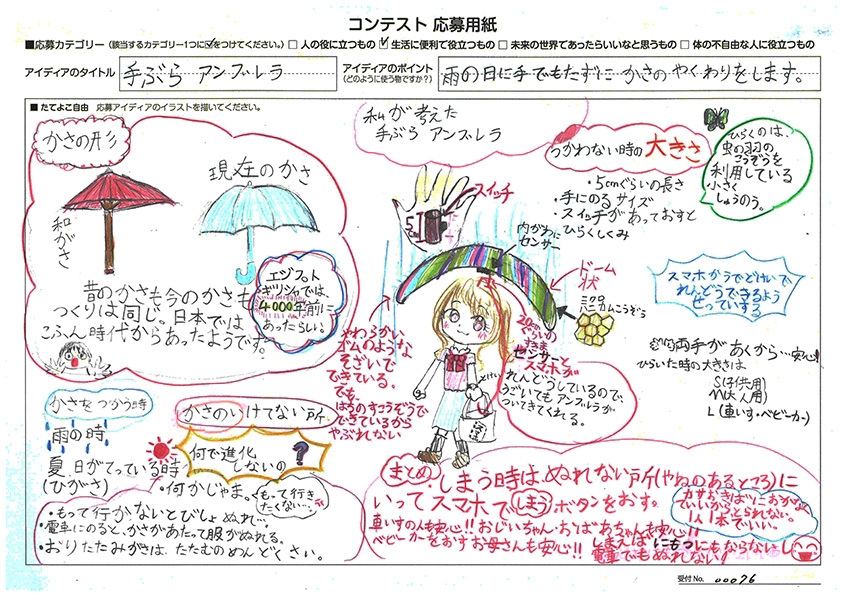 コンテスト 応募用紙
■応募カテゴリー (該当するカテゴリー1つに☑をつけてください。) □ 人の役に立つもの ☑ 生活に便利で役立つもの □ 未来の世界であったらいいなと思うもの □ 体の不自由な人に役立つもの
アイディアのタイトル
手ぶら アンブレラ
アイディアのポイント
(どのように使う物ですか?)
雨の日に手でもたずに かさのやくわりをします。
■ たてよこ自由 応募アイディアのイラストを描いてください。
かさの形
和がさ
現在のかさ
昔のかさも今のかさも
つくりは同じ。日本では
こふん時代からあったようです。
エジプト
ギリシャでは、
4000年前に
あったらしい。
私が考えた
手ぶら アンブレラ
スイッチ
5
内がわに
センサー
ドーム
状
ハニカムこうぞう
つかわない時の大きさ
・5cmぐらいの長さ
・手にのるサイズ
・スイッチがあっておすと
ひらくしくみ
ひらくのは、
虫の羽の
こうぞうを
利用している
小さく
しゅうのう。
スマホかうでどけいで
れんどうできるよう
せっていする
両手があくから…安心!
ひらいた時の大きさは
S(子供用)
M(大人用)
L(車いす・ベビーカー)
やわらかい
ゴムのような
そざいで
できている。
でも
はちのすこうぞうで
できているから
やぶれない
20cmぐらいの
すきま
センサーと
スマホが
れんどうしているので、
うごいてもアンブレラが
ついてきてくれる。
とけい
かさをつかう時
雨の時
夏 日がてっている時
(ひがさ)
かさのいけてない所
何で進化
しないの
?
・何かじゃま。
もって行き
たくない…
・もって行かないとびしょぬれ…
・電車にのると、かさがあたって服がぬれる。
・おりたたみがさは、たたむのめんどくさい。
まとめ
・しまう時は、ぬれない所(やねのあるところ)に
いってスマホでしまうボタンをおす。
車いすの人も安心!! おじいちゃん・おばあちゃんも安心!!
ベビーカーをおすお母さんも安心!! しまえばにもつにもならないし
電車でもぬれない!
カサおきばツにおかなく
ていいからとられない。
1人1本でいい。
受付 No. 00076